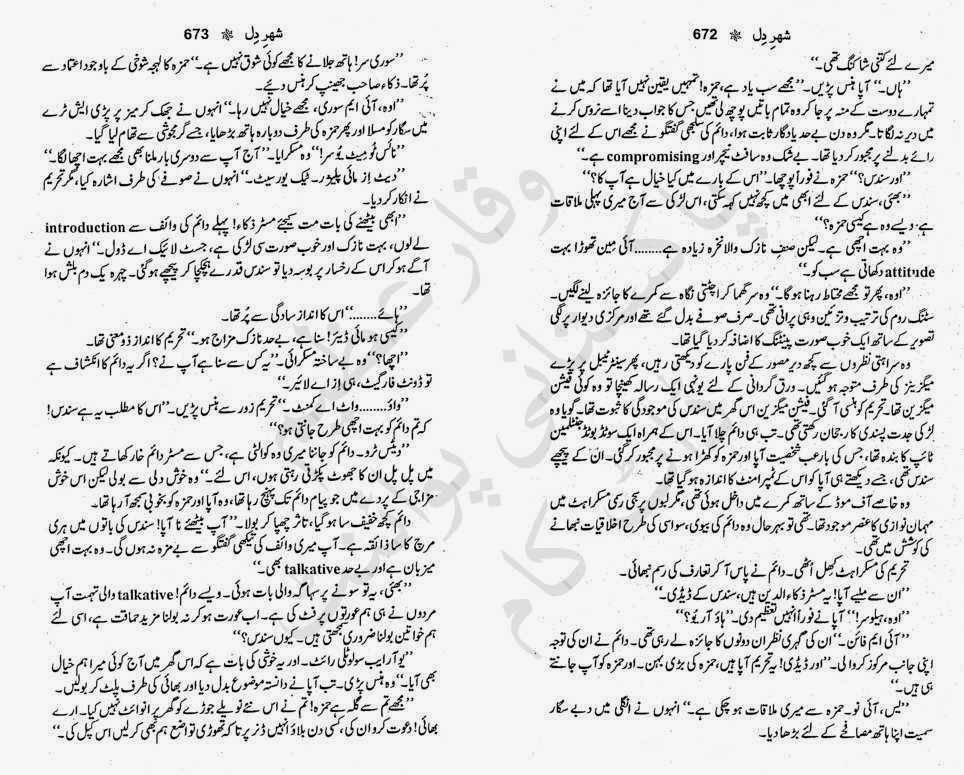 شہرِ دِل ❋ 672
میرے لئے کتنی شاکنگ تھی۔“
”ہاں۔“ آپا ہنس پڑیں۔ ”مجھے سب یاد ہے، حمزہ! تمہیں یقین نہیں آیا تھا کہ میں نے
تمہارے دوست کے منہ پر جا کر وہ تمام باتیں پوچھ لی تھیں، جس کا جواب دینا اسے نروس کرنے
میں دیر نہ لگاتا۔ مگر وہ دن بے حد یادگار ثابت ہوا، دائم کی سلجھی گفتگو نے مجھے اس کے لئے اپنی
رائے بدلنے پر مجبور کر دیا تھا۔ بے شک وہ سافٹ نیچر اور compromising ہے۔“
”اور سندس؟“ حمزہ نے فوراً پوچھا۔ ”اس کے بارے میں کیا خیال ہے آپ کا؟“
”بھئی، سندس کے لئے ابھی میں کچھ نہیں کہہ سکتی، اس لڑکی سے آج میری پہلی ملاقات
ہے۔ ویسے وہ ہے کیسی حمزہ؟“
”وہ بہت اچھی ہے۔ لیکن صنفِ نازک والا نخرہ زیادہ ہے........ آئی مین تھوڑا بہت
attitude دکھاتی ہے سب کو۔“
”اوہ، پھر تو مجھے محتاط رہنا ہو گا۔“ وہ سر گھما کر اچٹتی نگاہ سے کمرے کا جائزہ لینے لگیں۔
سٹنگ روم کی ترتیب و تزئین وہی پرانی تھی۔ صرف صوفے بدل گئے تھے اور مرکزی دیوار پر لگی
تصویر کے ساتھ ایک خوب صورت پینٹنگ کا اضافہ کر دیا گیا تھا۔
وہ سراہتی نظروں سے کچھ دیر مصور کے فن پارے کو دیکھتی رہیں، پھر سینٹر ٹیبل پر پڑے
میگزینز کی طرف متوجہ ہو گئیں۔ ورق گردانی کے لئے یونہی ایک رسالہ کھینچا تو وہ کوئی فیشن
میگزین تھا۔ تحریم کو ہنسی آ گئی۔ فیشن میگزین اس گھر میں سندس کی موجودگی کا ثبوت تھا۔ گویا وہ
لڑکی جدت پسندی کا رجحان رکھتی تھی۔ تب ہی دائم چلا آیا۔ اس کے ہمراہ ایک سوٹڈ بوٹڈ جنٹلمین
ٹائپ کا بندہ تھا، جس کی بارعب شخصیت آپا اور حمزہ کو کھڑا ہونے پر مجبور کر گئی۔ ان کے پیچھے
سندس تھی، جسے دیکھتے ہی آپا کو اس کے ٹمپرامنٹ کا اندازہ ہو گیا تھا۔
وہ خاصے آف موڈ کے ساتھ کمرے میں داخل ہوئی تھی، مگر لبوں پر رچی رسمی مسکراہٹ میں
مہمان نوازی کا عنصر موجود تھا۔ تھی تو بہرحال وہ دائم کی بیوی، سو اسی کی طرح اخلاقیات نبھانے
کی کوشش میں تھی۔
تحریم کی مسکراہٹ کھل اٹھی۔ دائم نے پاس آ کر تعارف کی رسم نبھائی۔
”ان سے ملیے آپا! یہ مسٹر ذکاء الدین ہیں، سندس کے ڈیڈی۔“
”اوہ، ہیلو سر!“ آپا نے فوراً انہیں تعظیم دی۔ ”ہاؤ آر یُو؟“
”آئی ایم فائن۔“ ان کی گہری نظر ان دونوں کا جائزہ لے رہی تھی۔ دائم نے ان کی توجہ
اپنی جانب مرکوز کروا لی۔ ”اور ڈیڈی! یہ تحریم آپا ہیں، حمزہ کی بڑی بہن۔ اور حمزہ کو آپ جانتے
ہی ہیں۔“
”یس، آئی نو۔ حمزہ سے میری ملاقات ہو چکی ہے۔“ انہوں نے انگلی میں دبے سگار
سمیت اپنا ہاتھ مصافحے کے لئے بڑھا دیا۔
شہرِ دِل ❋ 673
”سوری سر! ہاتھ جلانے کا مجھے کوئی شوق نہیں ہے۔“ حمزہ کا لہجہ شوخی کے باوجود اعتماد سے
پُر تھا۔ ذکاء صاحب جھینپ کر ہنس دیئے۔
”اوہ، آئی ایم سوری، مجھے خیال نہیں رہا۔“ انہوں نے جھک کر میز پر پڑی ایش ٹرے
میں سگار کو مسلا اور پھر حمزہ کی طرف دوبارہ ہاتھ بڑھایا، جسے گرمجوشی سے تھام لیا گیا۔
”نائس ٹو مِیٹ یُو سر!“ وہ مسکرایا۔ ”آج آپ سے دوسری بار ملنا بھی مجھے بہت اچھا لگا۔“
”دیٹ از مائی پلیژر۔ ٹیک یور سیٹ۔“ انہوں نے صوفے کی طرف اشارہ کیا، مگر تحریم
نے انکار کر دیا۔
”ابھی بیٹھنے کی بات مت کیجیے مسٹر ذکاء! پہلے دائم کی وائف سے introduction
لے لوں، بہت نازک اور خوب صورت سی لڑکی ہے، جسٹ لائیک اے ڈول۔“ انہوں نے
آگے ہو کر اس کے رخسار پر بوسہ دیا تو سندس قدرے ہچکچا کر پیچھے ہو گئی۔ چہرہ یک دم بلش ہوا
تھا۔
”ہائے........“ اس کا انداز سادگی سے پُر تھا۔
”کیسی ہو مائی ڈیئر! سنا ہے، بے حد نازک مزاج ہو۔“ تحریم کا انداز ذومعنی تھا۔
”اچھا؟“ وہ بے ساختہ مسکرائی۔ ”یہ کس سے سنا ہے آپ نے؟ اگر یہ دائم کا انکشاف ہے
تو ڈونٹ فارگیٹ، ہی اِز اے لائیر۔“
”واؤ........ واٹ اے کمنٹ۔“ تحریم زور سے ہنس پڑیں۔ ”اس کا مطلب یہ ہے سندس!
کہ تم دائم کو بہت اچھی طرح جانتی ہو؟“
”دیٹس ٹرو۔ دائم کو جاننا میری وہ کوالٹی ہے، جس سے مسٹر دائم خار کھاتے ہیں۔ کیونکہ
میں پل پل ان کا جھوٹ پکڑتی رہتی ہوں، اس لئے۔“ وہ خوش دلی سے بولی لیکن اس خوش
مزاجی کے پردے میں جو پیام دائم تک پہنچ رہا تھا، وہ آپا اور حمزہ کو بخوبی سمجھ آ رہا تھا۔
دائم کچھ خفیف سا ہو گیا، تاثر چھپا کر بولا۔ ”آپ بیٹھئے نا آپا! سندس کی باتوں میں ہری
مرچ کا سا ذائقہ ہے۔ آپ میری وائف کی تیکھی گفتگو سے بے مزہ نہ ہوں گی۔ وہ بہت اچھی
میزبان ہے اور بے حد talkative بھی۔“
”بھئی، یہ تو سونے پر سہاگہ والی بات ہوئی۔ ویسے دائم! talkative والی تہمت آپ
مردوں نے ہی ہم عورتوں پر فٹ کی ہے۔ اب عورت ہو کر نہ بولنا مزید حماقت ہے، اسی لئے
ہم خواتین بولنا ضروری سمجھتی ہیں۔ کیوں سندس؟“
”یُو آر ایب سولوٹلی رائٹ۔ اور یہ خوشی کی بات ہے کہ اس گھر میں آج کوئی میرا ہم خیال
بھی آیا۔“ وہ ہنس پڑی۔ تب آپا نے دانستہ موضوع بدل دیا اور بھائی کی طرف پلٹ کر بولیں۔
”مجھے تم سے گلہ ہے حمزہ! تم نے اس نئے نویلے جوڑے کو گھر پر انوائٹ نہیں کیا۔ ارے
بھائی! دعوت کرو ان کی، کسی دن بلاؤ انہیں ڈنر پر تاکہ تھوڑی تواضع ہم بھی کر لیں اس کپل کی۔“